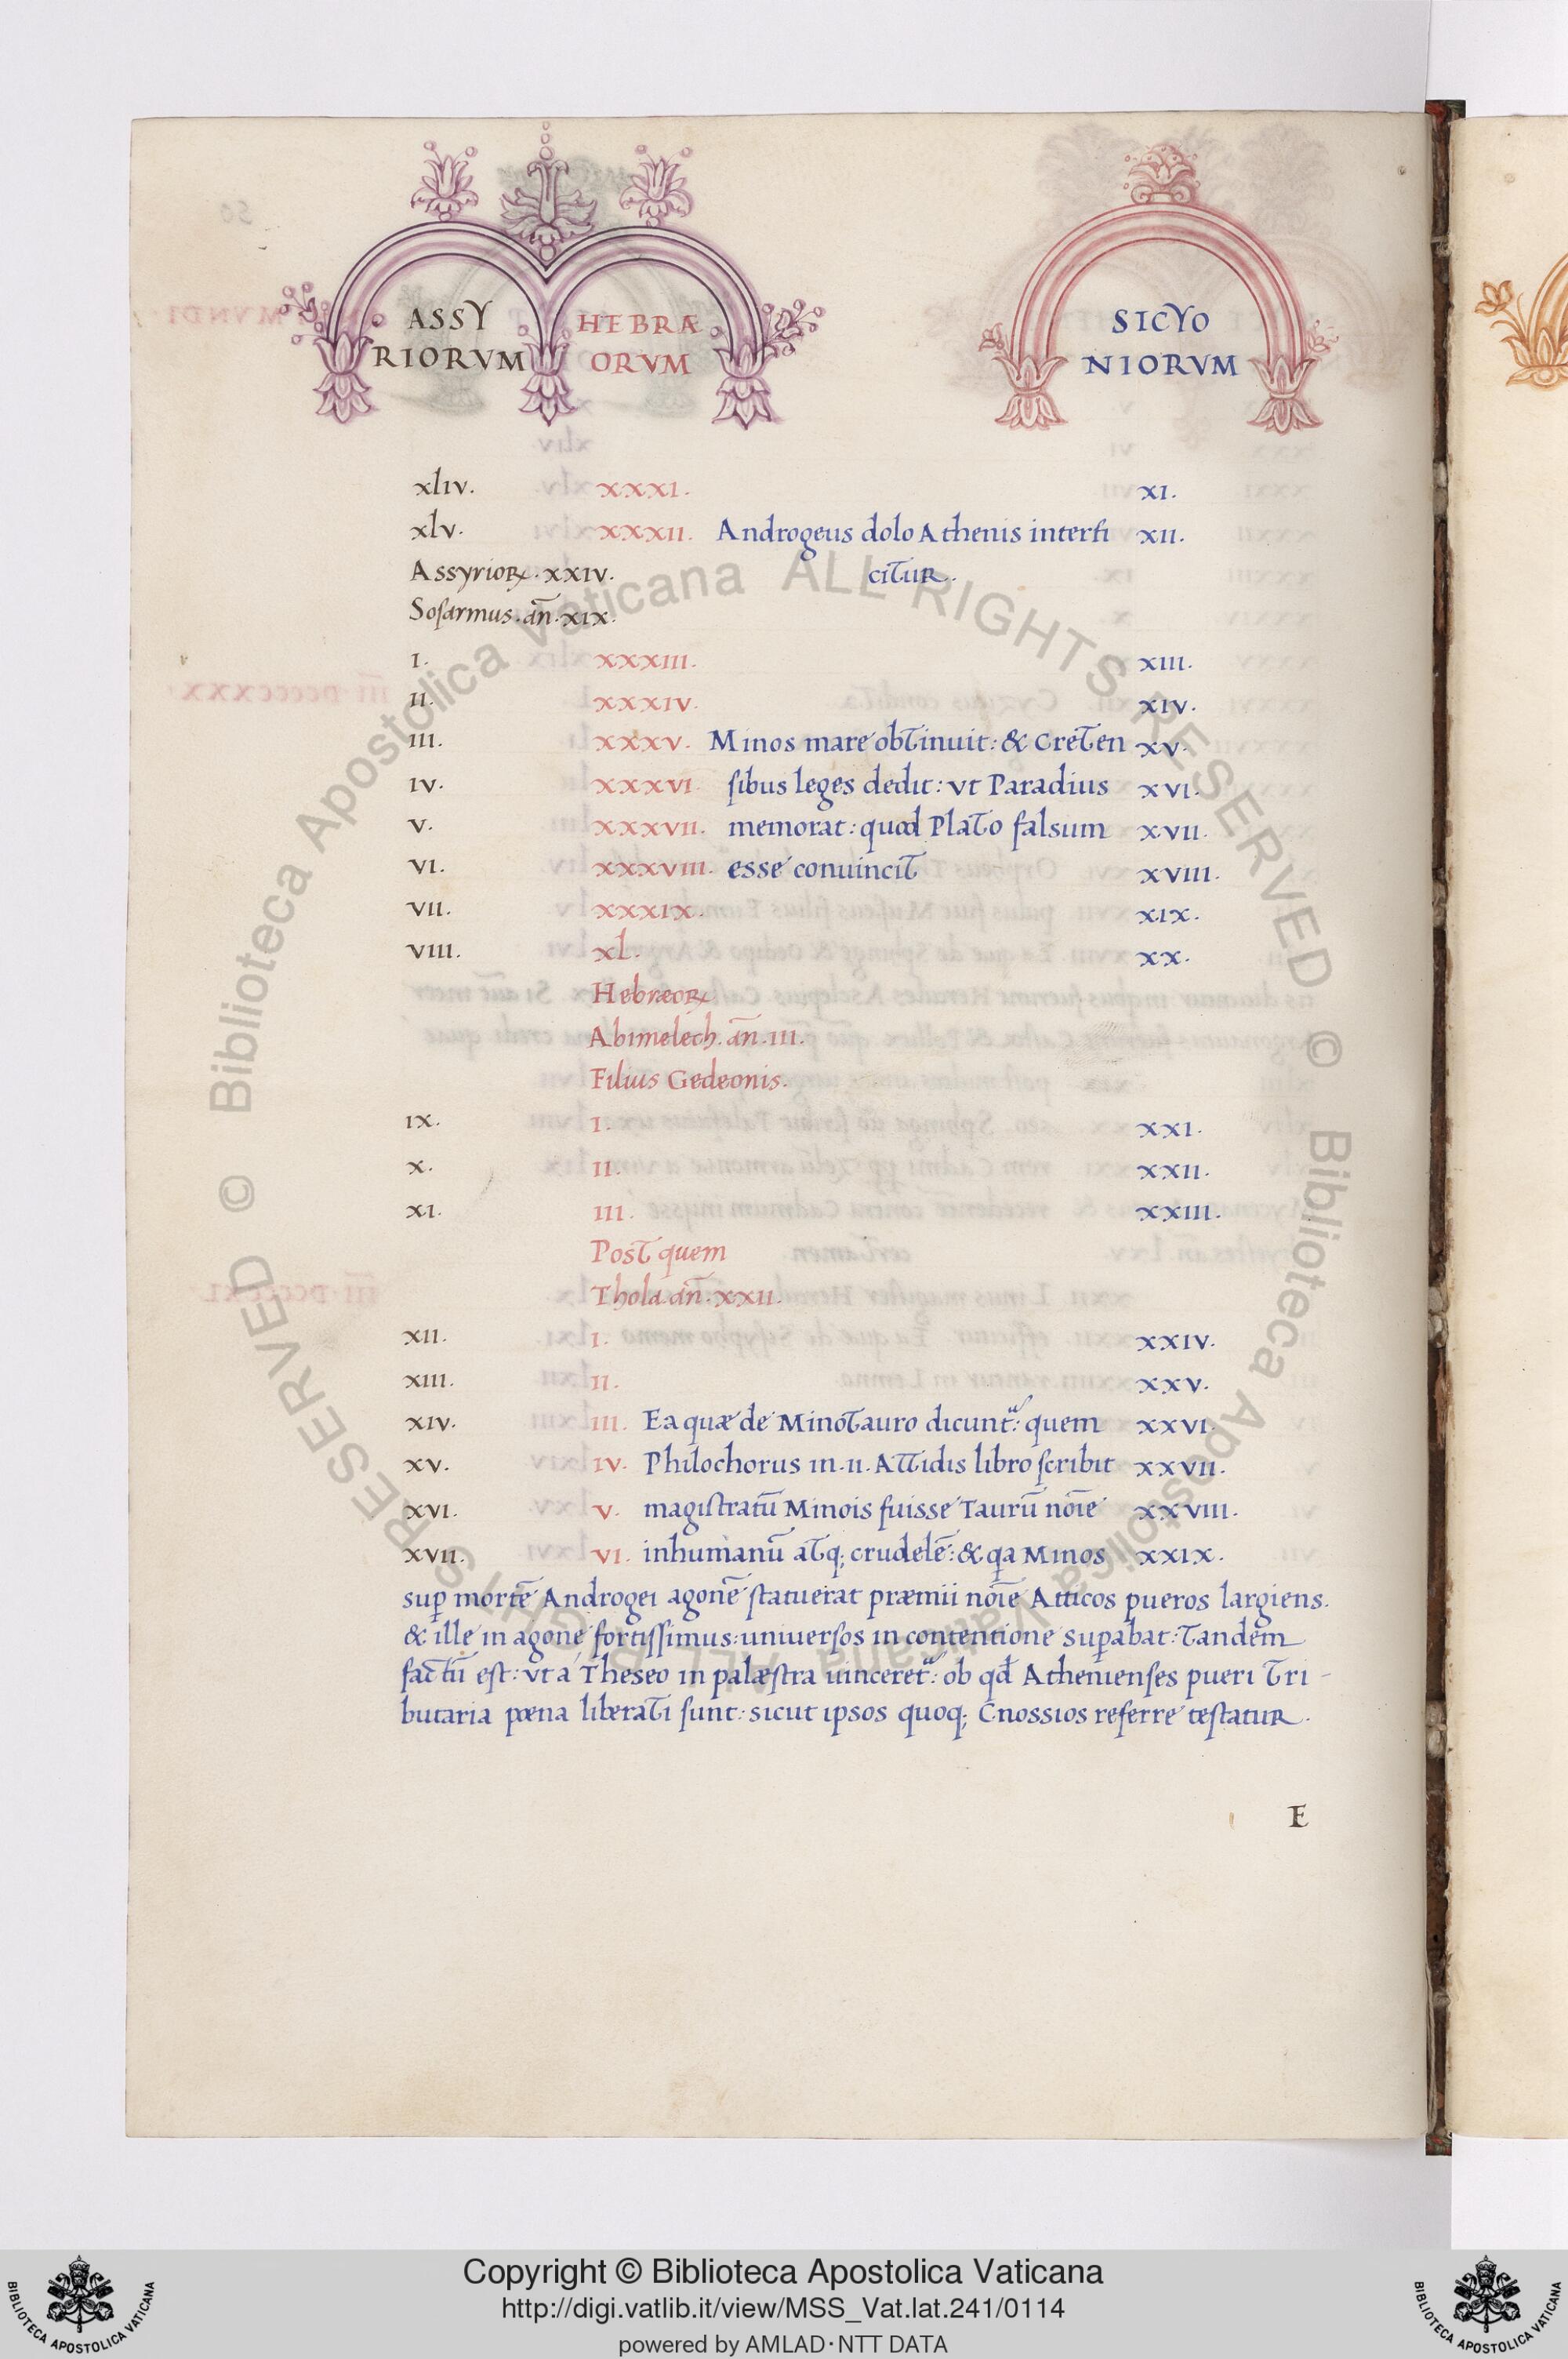 ASSY
RIORVM
HEBRÆ
ORVM
SICYO
NIORVM
xlıv. xxxı. xı.
xlv. xxxıı. Androgeus dolo Athenis interfi xıı.
Assyrioꝝ. xxıv. citur.
Sosarmus. an̄. xıx.
ı. xxxııı. xııı.
ıı. xxxıv. xıv.
ııı. xxxv. Minos mare obtinuit: & Creten xv.
ıv. xxxvı sibus leges dedit: vt Paradius xvı.
v. xxxvıı. memorat: quod Plato falsum xvıı.
vı. xxxvııı. esse conuincit xvııı.
vıı. xxxıx. xıx.
vııı. xl. xx.
Hebræoꝝ
Abimelech. an̄. ııı.
Filius Gedeonis.
ıx. ı. xxı.
x. ıı. xxıı.
xı. ııı. xxııı.
Post quem
Thola an̄. xxıı.
xıı. ı. xxıv.
xııı. ıı. xxv.
xıv. ııı. Ea quæ de Minotauro dicunt᷑: quem xxvı.
xv. ıv. Philochorus in. ıı. Attidis libro scribit xxvıı.
xvı. v. magistratū Minois fuisse Taurū noīe xxvııı.
xvıı. vı. inhumanū atq; crudelē: & qa Minos xxıx.
suꝑ mortē Androgei agonē statuerat præmii noīe Atticos pueros largiens.
& ille in agone fortissimus: uniuersos in contentione suꝑabat: Tandem
factū est: vt a Theseo in palæstra uinceret᷑: ob qđ Athenienses pueri Tri-
butaria pœna liberati sunt: sicut ipsos quoq; Cnossios referre testatur.
E
© Biblioteca Apostolica Vaticana ALL RIGHTS RESERVED © Biblioteca Apostolica Vaticana ALL RIGHTS RESERVED
Copyright © Biblioteca Apostolica Vaticana
http://digi.vatlib.it/view/MSS_Vat.lat.241/0114
powered by AMLAD·NTT DATA
BIBLIOTECA APOSTOLICA VATICANA
BIBLIOTECA APOSTOLICA VATICANA